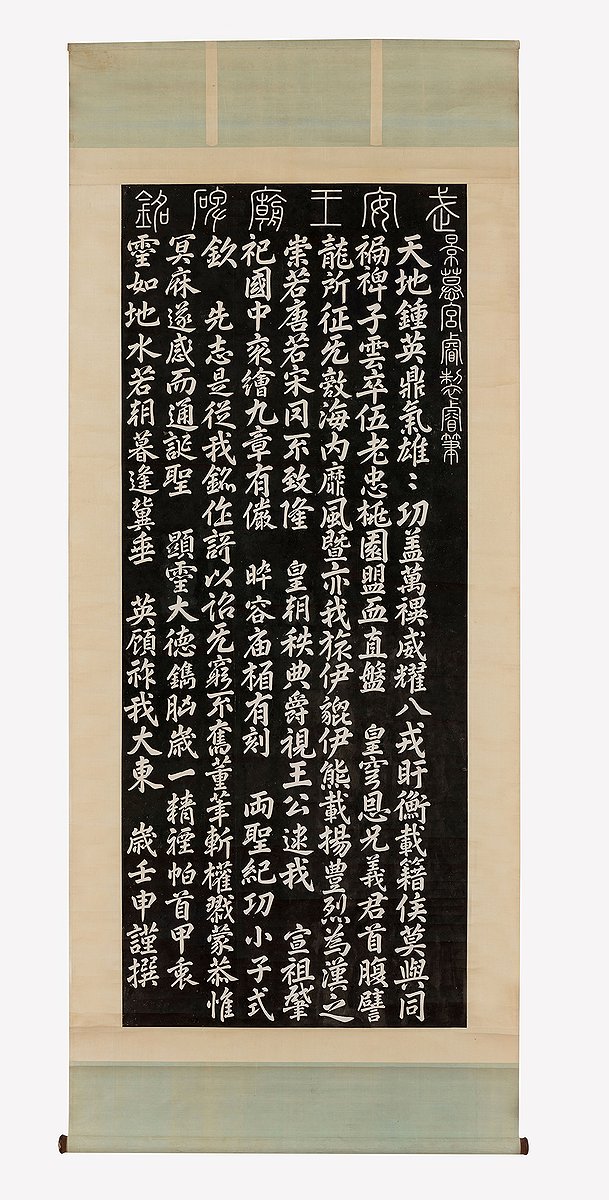 武安王廟碑銘
景慕宮睿製睿筆
天地鍾英鼎氣雄〻功盖萬禩威耀八戎盱衡載籍侯莫與同
褊裨子雲卒伍老忠桃園盟血直盤 皇穹恩兄義君首腹譬
龍所征旡敵海內靡風暨亦我旅伊貔伊熊載揚豊烈為漢之
崇若唐若宋罔不致隆 皇朝秩典爵視王公逮我 宣祖肇
祀國中衮繪九章有儼 晬容庙栢有刻 両聖紀功小子式
欽 先志是從我銘作訶以詔旡窮不奮董筆斬權戮蒙恭惟
冥庥遂感而通誕聖 顯霊大德鐫胸歲一精禋帕首甲衷
霊如地水若朝暮逢冀垂 英顧祚我大東 歲壬申謹撰